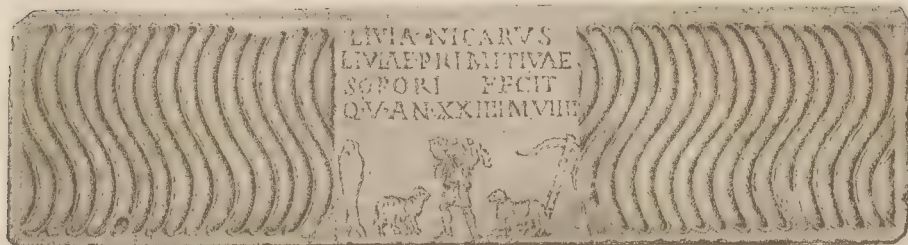 LIVIA·NICARVS
LIVIAE·PRIMITIVAE
SORORI FECIT
QV·AN·XXIIII·M·VIIII